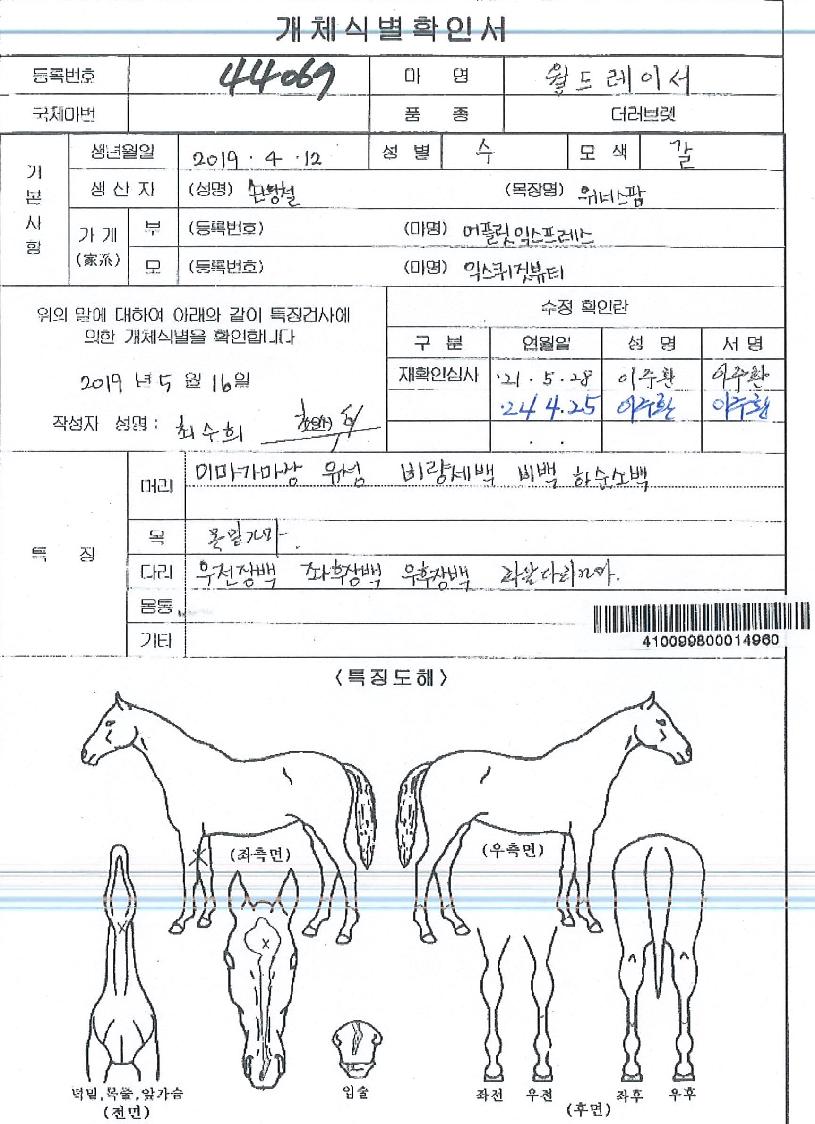 개체식별확인서
등록번호 44069 마 명 월드레이서
국제마번 품 종 더러브렛
기본사항
생년월일 2019 . 4 . 12 성 별 수 모 색 갈
생 산 자 (성명) (목장명) 위너스팜
가 계 (家系) 부 (등록번호) (마명) 머플릿익스프레스
모 (등록번호) (마명) 익스퀴짓뷰티
위의 말에 대하여 아래와 같이 특징검사에
의한 개체식별을 확인합니다
2019 년 5 월 16 일
작성자 성명 : 최수희
수정 확인란
구 분 연월일 성 명 서 명
재확인심사 '21 . 5 . 28 이주환 이주환
'24 4.25 이주환 이주환
. .
특 징
머리 이마가마상 유성 비량세백 비백 하순소백
목 목밑가마.
다리 우전장백 좌후장백 우후장백
몸통
기타
410099800014960
<특징도해>
(좌측면)
(우측면)
턱밑,목줄,앞가슴
(전면)
입술
좌전 우전 좌후 우후
(후면)